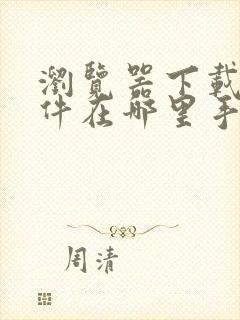 瀏覽器下載
件在哪里手
周清